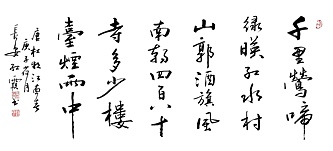 千里鶯啼
绿暎红水村
山郭酒旗風
南朝四百八十
寺多少樓
臺煙雨中
唐杜牧江南春
庚子荷月